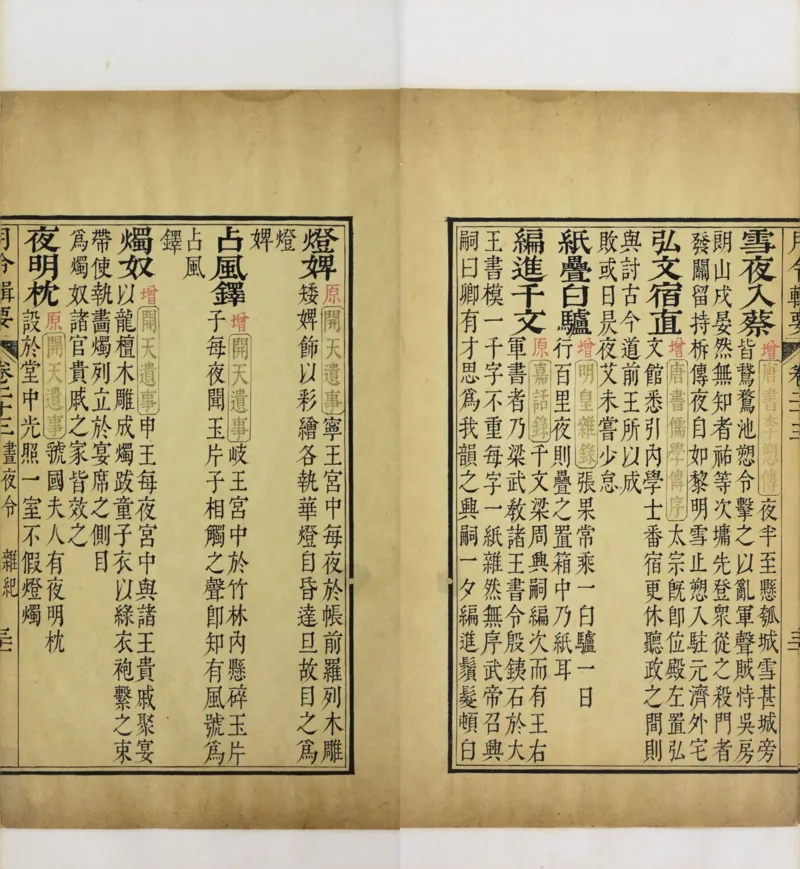 月令輯要 卷二十三
雪夜入蔡 增 唐書李愬傳 夜半至懸瓠城雪甚城旁
皆鵞鶩池愬令擊之以亂軍聲賊恃吳房
朗山戍晏然無知者祐等次墉先登衆從之殺門者
發關留持柝傳夜自如黎明雪止愬入駐元濟外宅
弘文宿直 增 唐書儒學傳序 太宗旣卽位殿左置弘
文館悉引內學士番宿更休聽政之間則
與討古今道前王所以成
敗或日昃夜艾未嘗少怠
紙疊白驢 增 明皇雜錄 張果常乘一白驢一日
行百里夜則疊之置箱中乃紙耳
編進千文 原 嘉話錄 千文梁周興嗣編次而有王右
軍書者乃梁武敎諸王書令殷鐵石於大
王書模一千字不重每字一紙雜然無序武帝召興
嗣曰卿有才思爲我韻之興嗣一夕編進鬚髮頓白
燈婢 原 開天遺事 寧王宮中每夜於帳前羅列木雕
矮婢飾以彩繪各執華燈自昏達旦故目之爲
燈
婢
占風鐸 增 開天遺事 岐王宮中於竹林內懸碎玉片
子每夜聞玉片子相觸之聲卽知有風號爲
占風
鐸
燭奴 增 開天遺事 申王每夜宮中與諸王貴戚聚宴
以龍檀木雕成燭跋童子衣以綠衣袍繫之束
帶使執畫燭列立於宴席之側目
爲燭奴諸官貴戚之家皆效之
夜明枕 原 開天遺事 虢國夫人有夜明枕
設於堂中光照一室不假燈燭
月令輯要 卷二十三 晝夜令 雜紀